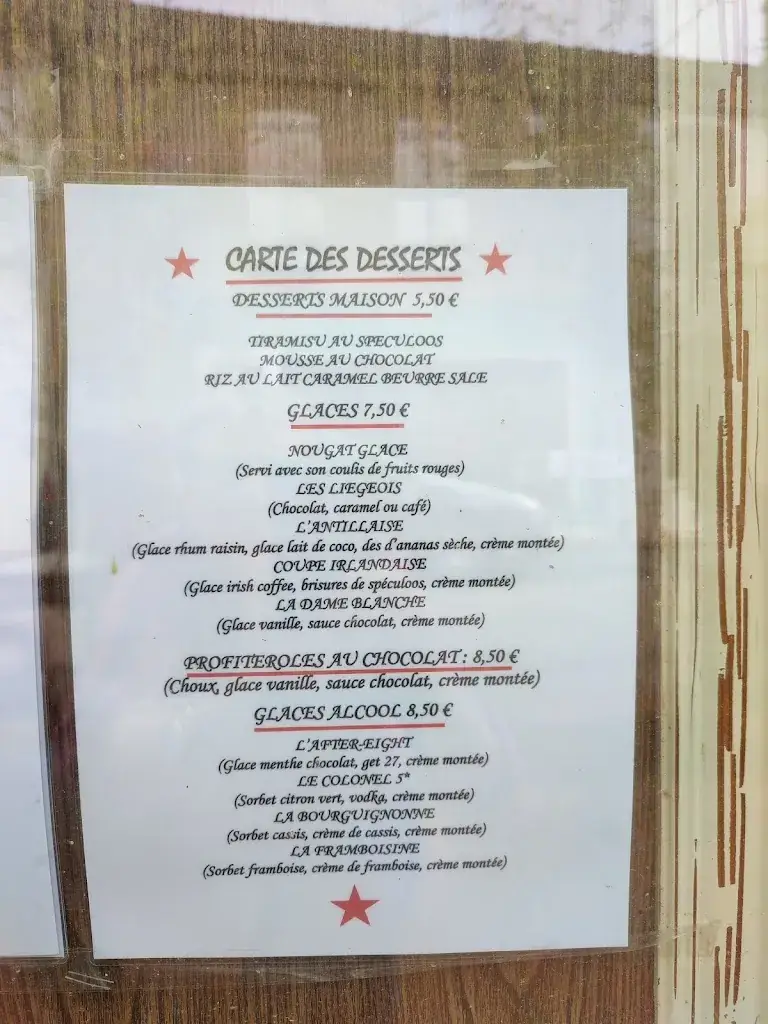 CARTE DES DESSERTS
DESSERTS MAISON 5,50 €
TIRAMISU AU SPECULOOS
MOUSSE AU CHOCOLAT
RIZ AU LAIT CARAMEL BEURRE SALE
GLACES 7,50 €
NOUGAT GLACE
(Servi avec son coulis de fruits rouges)
LES LIEGEOIS
(Chocolat, caramel ou café)
L'ANTILLAISE
(Glace rhum raisin, glace lait de coco, des d'ananas sèche, crème montée)
COUPE IRLANDAISE
(Glace irish coffee, brisures de spéculoos, crème montée)
LA DAME BLANCHE
(Glace vanille, sauce chocolat, crème montée)
PROFITEROLES AU CHOCOLAT : 8,50 €
(Choux, glace vanille, sauce chocolat, crème montée)
GLACES ALCOOL 8,50 €
L'AFTER-EIGHT
(Glace menthe chocolat, get 27, crème montée)
LE COLONEL 5*
(Sorbet citron vert, vodka, crème montée)
LA BOURGUIGNONNE
(Sorbet cassis, crème de cassis, crème montée)
LA FRAMBOISINE
(Sorbet framboise, crème de framboise, crème montée)